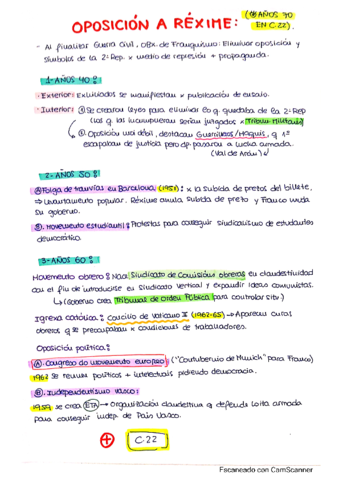 OPOSICIÓN A RÉXIME: (*AÑOS 70
EN C.22).
- Al finalitar Guerra Civil, Obx. de Franquismo: Eliminar oposición y
símbolos de la 2ª Rep. x medio de represión + propaganda.
1-AÑOS 40:
· Exterior: Exiliados se manifiestan x publicación de ensaio.
· Interior: Ⓐ Se crearon leyes para eliminar lo q quedaba de la 2ª Rep
(los q las incumplieran serían juzgados x Tribun Militares)
Ⓑ. Oposición moi débil, destacan Guerrilleros/Maquis, q 1º
escapaban de justicia pero dp. pasaron a lucha armada.
(Val de Arán)
2-AÑOS 50:
Ⓐ Folga de tranvías en Barcelona (1951): x la subida de pretos del billete,
⇒ Levantamento popular. Réxime anula subida de preto y Franco muda
su goberno.
Ⓑ. Movemento estudiantil: Protestas para conseguir sindicalismo de estudiantes
democrático.
3-AÑOS 60:
Movemento obrero: Nac Sindicato de Comisións obreros en clandestinidad
con el fin de introducirse en Sindicato Vertical y expandir ideas comunistas.
↳ (Goberno crea Tribunas de Orden Pública para controlar sit.)
Igrexa católica: Concilio de Vaticano II (1962-65) → Aparecen curas
obreros q se preocupaban x condiciones de traballadores.
Oposición política:
Ⓐ. Congreso do movemento europeo: ("Contubernio de Munich" para Franco)
1962 Se reunen políticos + intelectuais pidiendo democracia.
Ⓑ. Independentismo vasco:
1959 se crea ETA → Organización clandestina q defende loita armada
para conseguir indep. de País Vasco.
+ C.22
Escaneado con CamScanner